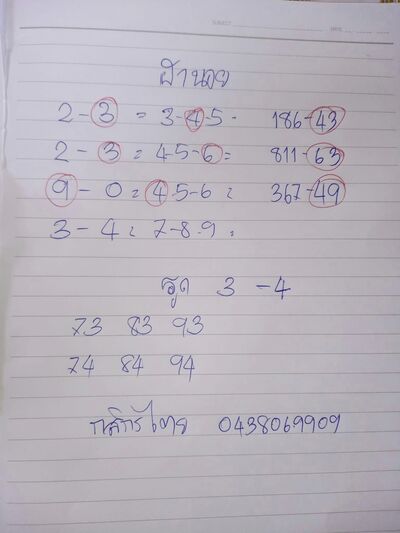 ฝ้านวย
2 - 3 = 3-4-5- 186-43
2 - 3 = 4-5-6= 811-63
9 - 0 = 4-5-6 = 367-49
3 - 4 = 7-8-9 =
รูด 3 - 4
73 83 93
74 84 94
กสิกรไทย 0438069909